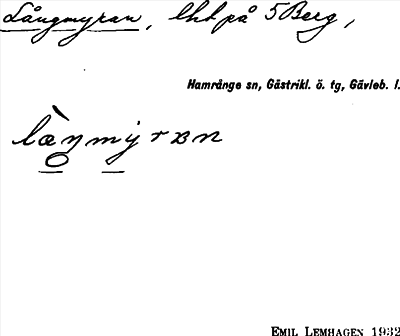 Långmyran, lht på 5 Berg,
Hamrånge sn, Gästrikl. ö. tg, Gävleb. l.
EMIL LEMHAGEN 1932